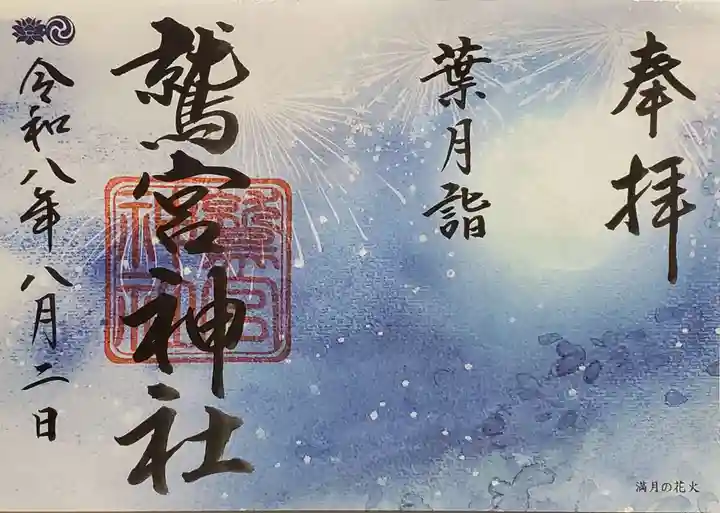 奉拝
葉月詣
鷲宮神社
鷲宮神社
令和八年八月二日
満月の花火